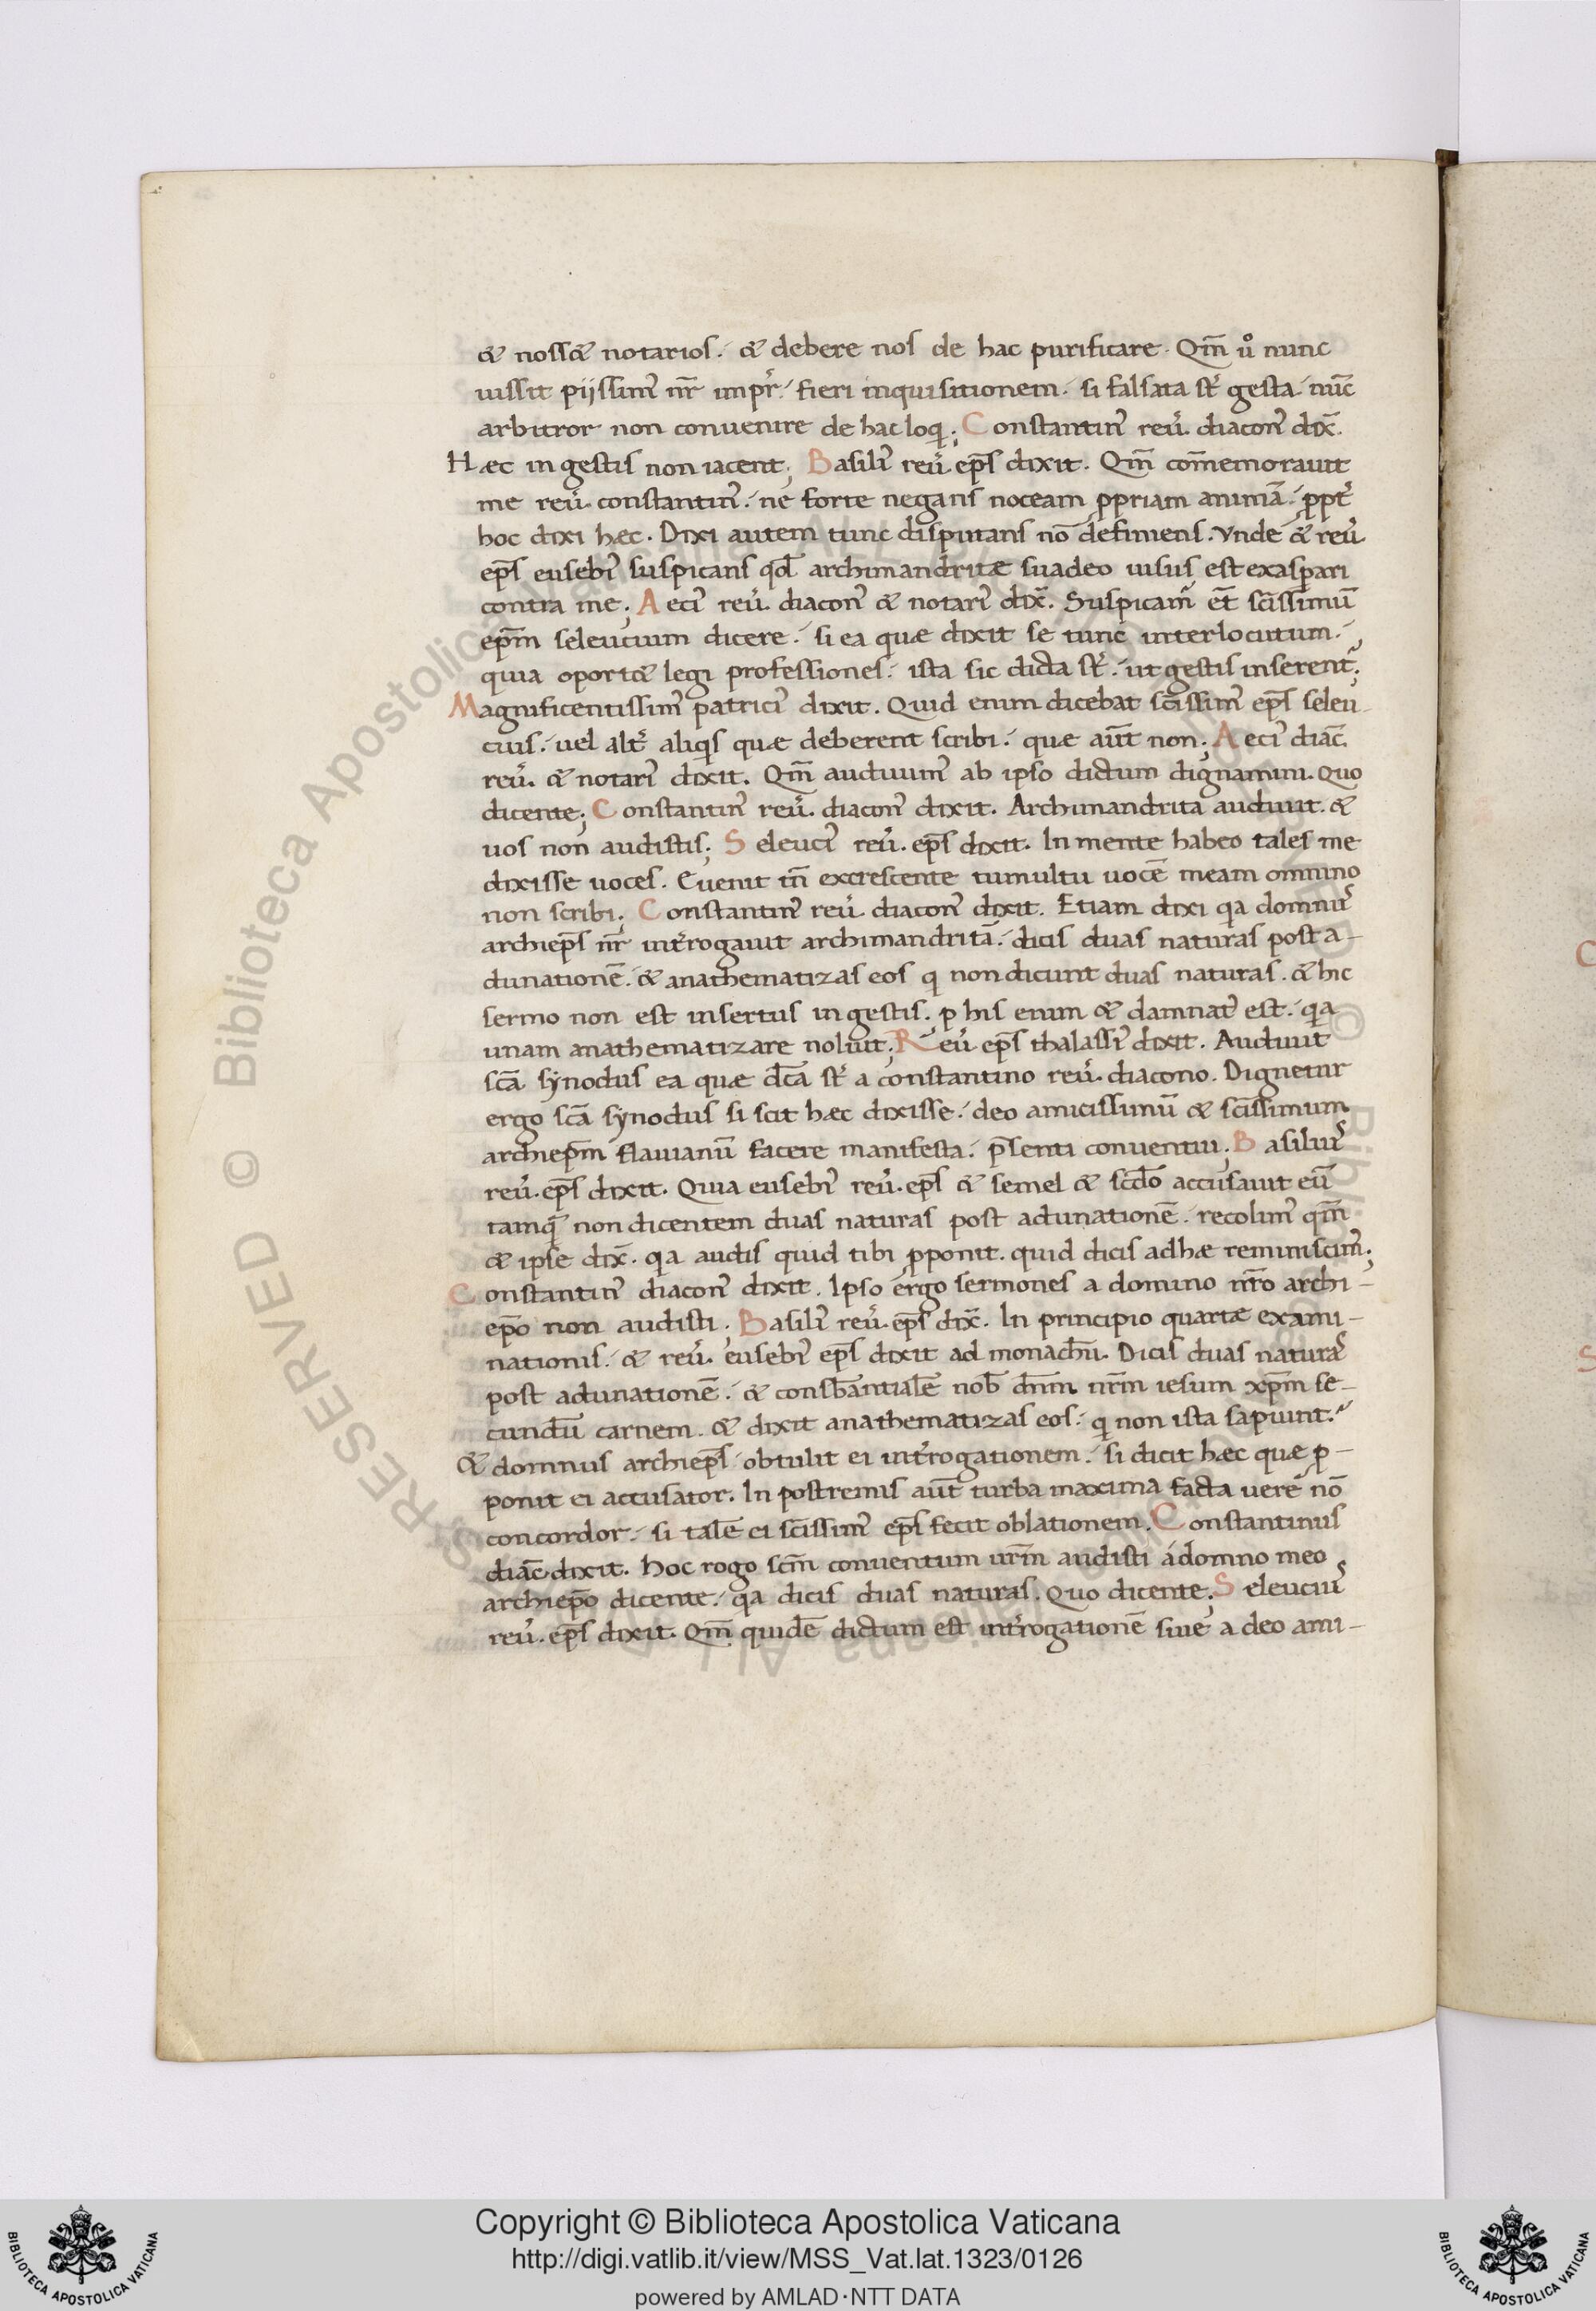 & noss& notarios. & debere nos de hac purificare. Qm̄ u͛o nunc
iussit pijssim᾽ nr̄ imp̄r. fieri inquisitionem. si falsata st᾽ gesta. nūc
arbitror non conuenire de hac loqi; Constantin᾽ reu᾽. diacon᾽ dix̄.
Hæc in gestis non iacent; Basili᾽ reu᾽. ep̄s dixit. Qm̄ com̄emorauit
me reu᾽. constantin᾽. ne forte negans noceam ꝓpriam animā. ꝓpt᾽
hoc dixi hæc. Dixi autem tunc disputans nō definiens. Vnde & reu᾽
ep̄s eusebi᾽ suspicans qd̄ archimandritæ suadeo uisus est exasꝑari
contra me; Aeci᾽ reu᾽. diacon᾽ & notari᾽ dix̄. Suspicam᾽ et̄ sc̄issimū
ep̄m seleucium dicere. si ea quæ dixit se tunc interlocutum.
quia oport& legi professiones. ista sic dicta st᾽. ut gestis inserent᾽;
Magnificentissim᾽ patrici᾽ dixit. Quid enim dicebat sc̄issim᾽ ep̄s seleu
cius. uel alt᾽ aliqis quæ deberent scribi. quæ aūt non; Aeci᾽ diac̄.
reu᾽. & notari᾽ dixit. Qm̄ audiuim᾽ ab ipso dictum dignamini. Quo
dicente; Constantin᾽ reu᾽. diacon᾽ dixit. Archimandrita audiuit. &
uos non audistis; Seleuci᾽ reu᾽. ep̄s dixit. In mente habeo tales me
dixisse uoces. Euenit tn̄ excrescente tumultu uocē meam omnino
non scribi; Constantin᾽ reu᾽ diacon᾽ dixit. Etiam dixi qia domnus
archiep̄s nr̄ int᾽rogauit archimandritā. dicis duas naturas post a-
dunationē. & anathematizas eos q non dicunt duas naturas. & hic
sermo non est insertus in gestis. ꝑ his enim & damnat᾽ est. qia
unam anathematizare noluit; Reu᾽ ep̄s thalassi᾽ dixit. Audiuit
sc̄a synodus ea quæ dc̄a st᾽ a constantino reu᾽. diacono. Dignetur
ergo sc̄a synodus si scit hæc dixisse. deo amicissimū & sc̄issimum
archiep̄m flauianū facere manifesta. p̄senti conuentui; Basilius
reu᾽. ep̄s dixit. Quia eusebi᾽ reu᾽. ep̄s & semel & sc̄do accusauit eū
tamqā non dicentem duas naturas post adunationē. recolim᾽ qm̄
& ipse dix̄. qia audis quid tibi ꝓponit. quid dicis ad hæ reminiscim᾽;
Constantin᾽ diacon᾽ dixit. Ipso ergo sermones a domino nr̄o archi-
ep̄o non audisti; Basili᾽ reu᾽. ep̄s dix̄. In principio quartæ exami-
nationis. & reu᾽. eusebi᾽ ep̄s dixit ad monachū. Dicis duas naturas
post adunationē. & consb̄antialē nob̄ dn̄m nr̄m iesum xp̄m se-
cundū carnem. & dixit anathematizas eos. qi non ista sapiunt.
& domnus archiep̄s obtulit ei int᾽rogationem. si dicit hæc quæ ꝓ-
ponit ei accusator. In postremis aūt turba maxima facta uere nō
concordor. si talē ei sc̄issim᾽ ep̄s fecit oblationem. Constantinus
diac̄ dixit. Hoc rogo sc̄m conuentum ur̄m audisti a domno meo
archiep̄o dicente. qia dicis duas naturas. Quo dicente; Seleucius
reu᾽. ep̄s dixit. Qm̄ quidē dictum est int᾽rogationē siue a deo ami-
Copyright © Biblioteca Apostolica Vaticana
http://digi.vatlib.it/view/MSS_Vat.lat.1323/0126
powered by AMLAD·NTT DATA